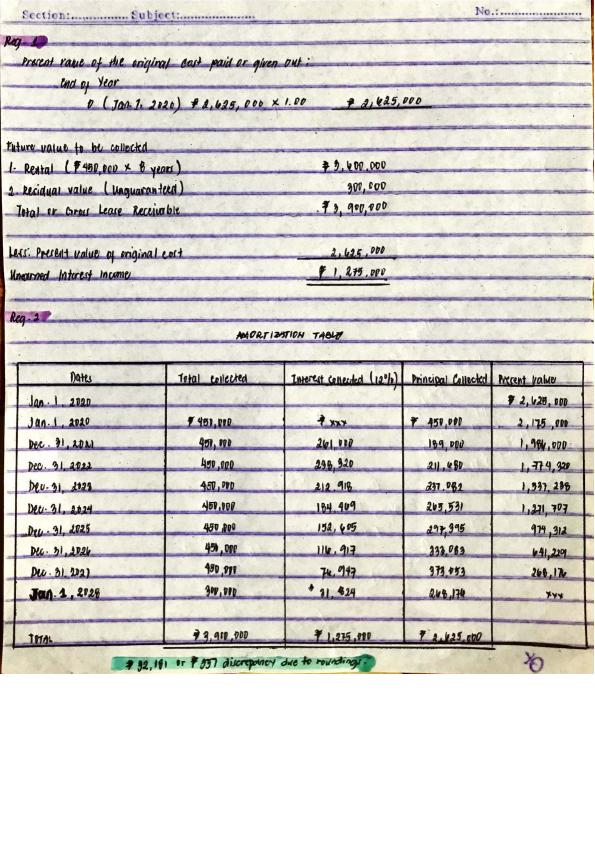 Section:............... Subject:................... No.:......................
Req. 1
Present value of the original cost paid or given out:
End of Year
0 (Jan. 1, 2020) ₱ 2,625,000 x 1.00 ₱ 2,625,000
Future value to be collected
1. Rental (₱450,000 x 8 years) ₱ 3,600,000
2. Residual value (Unguaranteed) 300,000
Total or Gross Lease Receivable ₱ 3,900,000
Less: Present value of original cost 2,625,000
Unearned Interest Income ₱ 1,275,000
Req. 2
AMORTIZATION TABLE
Dates Total collected Interest collected (12%) Principal Collected Present value
Jan. 1, 2020 ₱ 2,625,000
Jan. 1, 2020 ₱ 450,000 ₱ xxx ₱ 450,000 2,175,000
Dec. 31, 2021 450,000 261,000 189,000 1,986,000
Dec. 31, 2022 450,000 238,320 211,680 1,774,320
Dec. 31, 2023 450,000 212,918 237,082 1,537,238
Dec. 31, 2024 450,000 184,469 265,531 1,271,707
Dec. 31, 2025 450,000 152,605 297,395 974,312
Dec. 31, 2026 450,000 116,917 333,083 641,229
Dec. 31, 2027 450,000 76,947 373,053 268,176
Jan. 1, 2028 300,000 * 31,824 268,176 xxx
TOTAL ₱ 3,900,000 ₱ 1,275,000 ₱ 2,625,000
₱ 32,181 or ₱ 357 discrepancy due to roundings.